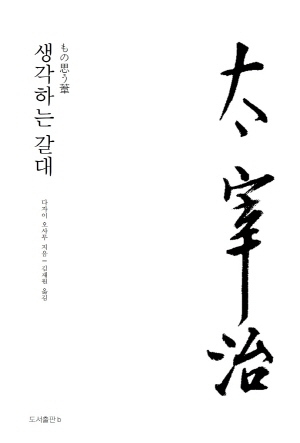 太宰治
もの思う葦
생각하는 갈대
다자이 오사무 지음 - 김재원 옮김
도서출판 b